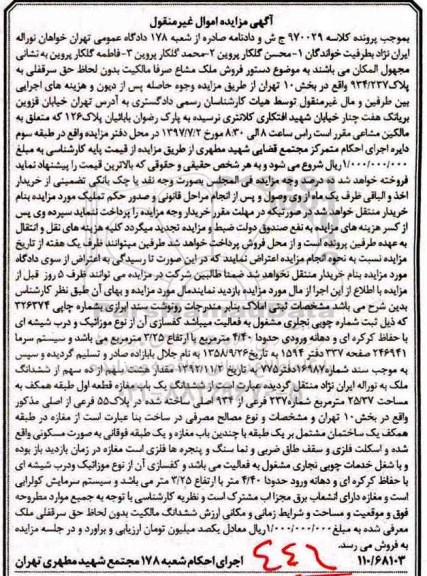 آگهی مزایده اموال غیرمنقول
بموجب پرونده کلاسه ۹۷۰۰۲۹ ج ش و دادنامه صادره از شعبه ۱۷۸ دادگاه عمومی تهران خواهان نوراله
ایران نژاد بطرفیت خواندگان ۱-محسن گلکار پروین ۲-محمد گلکار پروین ۳-فاطمه گلکار پروین به نشانی
مجهول المکان می باشند به موضوع دستور فروش ملک مشاع صرفا مالکیت بدون لحاظ حق سرقفلی به
پلاک۹۳۴/۲۳۷ واقع در بخش۱۰ تهران از طریق مزایده وجوه حاصله پس از دیون و هزینه های اجرایی
بین طرفین و مال غیرمنقول توسط هیات کارشناسان رسمی دادگستری به آدرس تهران خیابان قزوین
بریانک هفت چنار خیابان شهید افتکاری کلانتری نرسیده به پارک رضوان بابائیان پلاک۱۲۶ که متعلق به
مالکین مشاعی مقرر است راس ساعت ۸ الی ۸:۳۰ مورخ ۱۳۹۷/۷/۲ در محل دفتر مزایده واقع در طبقه سوم
دایره اجرای احکام متمرکز مجتمع قضایی شهید مطهری از طریق مزایده از قیمت پایه کارشناسی به مبلغ
۱/۰۰۰/۰۰۰/۰۰۰ ریال شروع می شود و به هر شخص حقیقی و حقوقی که بالاترین قیمت را پیشنهاد نماید
فروخته خواهد شد ده درصد وجه مزایده فی المجلس بصورت وجه نقد یا چک بانکی تضمینی از خریدار
اخذ و الباقی ظرف یک ماه از وی وصول و پس از انجام مراحل قانونی و صدور حکم تملیک مورد مزایده بنام
خریدار منتقل خواهد شد در صورتیکه در مهلت مقرر خریدار وجه مزایده را پرداخت ننماید سپرده وی پس
از کسر هزینه های مزایده به نفع صندوق دولت ضبط و مزایده تجدید میگردد کلیه هزینه های نقل و انتقال
به عهده طرفین پرونده است و از محل فروش پرداخت خواهد شد طرفین میتوانند ظرف یک هفته از تاریخ
مزایده نسبت به نحوه انجام مزایده اعتراض نمایند که در این صورت تا رسیدگی به اعتراض از سوی دادگاه
مورد مزایده بنام خریدار منتقل نخواهد شد ضمنا طالبین شرکت در مزایده می توانند ظرف ۵ روز قبل از
مزایده با اطلاع از این اجرا از مال مورد مزایده بازدید نمایند مال مورد مزایده و بهای آن طبق نظر کارشناس
بدین شرح می باشد مشخصات ثبتی املاک بنابر مندرجات رونوشت سند اول به شماره چاپی ۳۲۶۳۷۴
که ذیل ثبت شماره چوبی نجاری مشغول به فعالیت میباشد کفسازی آن از نوع موزائیک و درب شیشه ای
با حفاظ کرکره ای و دهانه ورودی حدودا ۴/۴۰ مترلوری با ارتفاع ۳/۲۵ مترمربع می باشد و سیستم سرما
۲۴۶۹۴۱ صفحه ۳۳۷ دفتر ۱۵۹۴ به تاریخ۱۳۵۸/۹/۲۶ به نام جلال بابازاده صادر و تسلیم گردیده و سپس
به موجب سند شماره۱۶۹۸۷دفتر۷۷۵ به تاریخ ۱۳۹۲/۱۱/۲ مقدار هشت سهم از ده سهم از ششدانگ
ملک به نوراله ایران نژاد منتقل گردیده عبارت است از ششدانگ یک باب مغازه قطعه اول طبقه همکف به
مساحت ۲۵/۳۷ مترمربع شماره۲۳۷ فرعی از ۹۳۴ اصلی ساخته شده در پلاک۵۵ فرعی از اصلی مذکور
واقع در بخش۱۰ تهران و مشخصات و نوع مصالح مصرفی در ساخت بنا عبارت است از مغازه در طبقه
همکف یک ساختمان مشتمل بر یک طبقه با چندین باب مغازه و یک طبقه فوقانی به صورت مسکونی واقع
شده و اسکلت فلزی و سقف طاق ضربی و نما سنگ و پنجره ها فلزی است مغازه در زمان بازدید باز بوده
و با شغل خدمات چوبی نجاری مشغول به فعالیت می باشد و کفسازی آن از نوع موزائیک ودرب شیشه ای
با حفاظ کرکره ای و دهانه ورود حدودا ۴/۴۰ متر با ارتفاع ۳/۲۵ متر می باشد و سیستم سرمایش کولرابی
است و مغازه دارای انشعاب برق مجزا اب مشترک است و نظریه کارشناسی با توجه به جمیع موارد مطروحه
فوق و موقعیت و مساحت و شرایط زمانی و مکانی ارزش ششدانگ مالکیت بدون لحاظ حق سرقفلی ملک
معرفی شده به مبلغ ۱/۰۰۰/۰۰۰/۰۰۰ریال معادل یکصد میلیون تومان ارزیابی و براورد و در جلسه مزایده
به فروش می رسد.
۱۱۰/۶۸۱۰۳ اجرای احکام شعبه ۱۷۸ مجتمع شهید مطهری تهران
۴۴۶